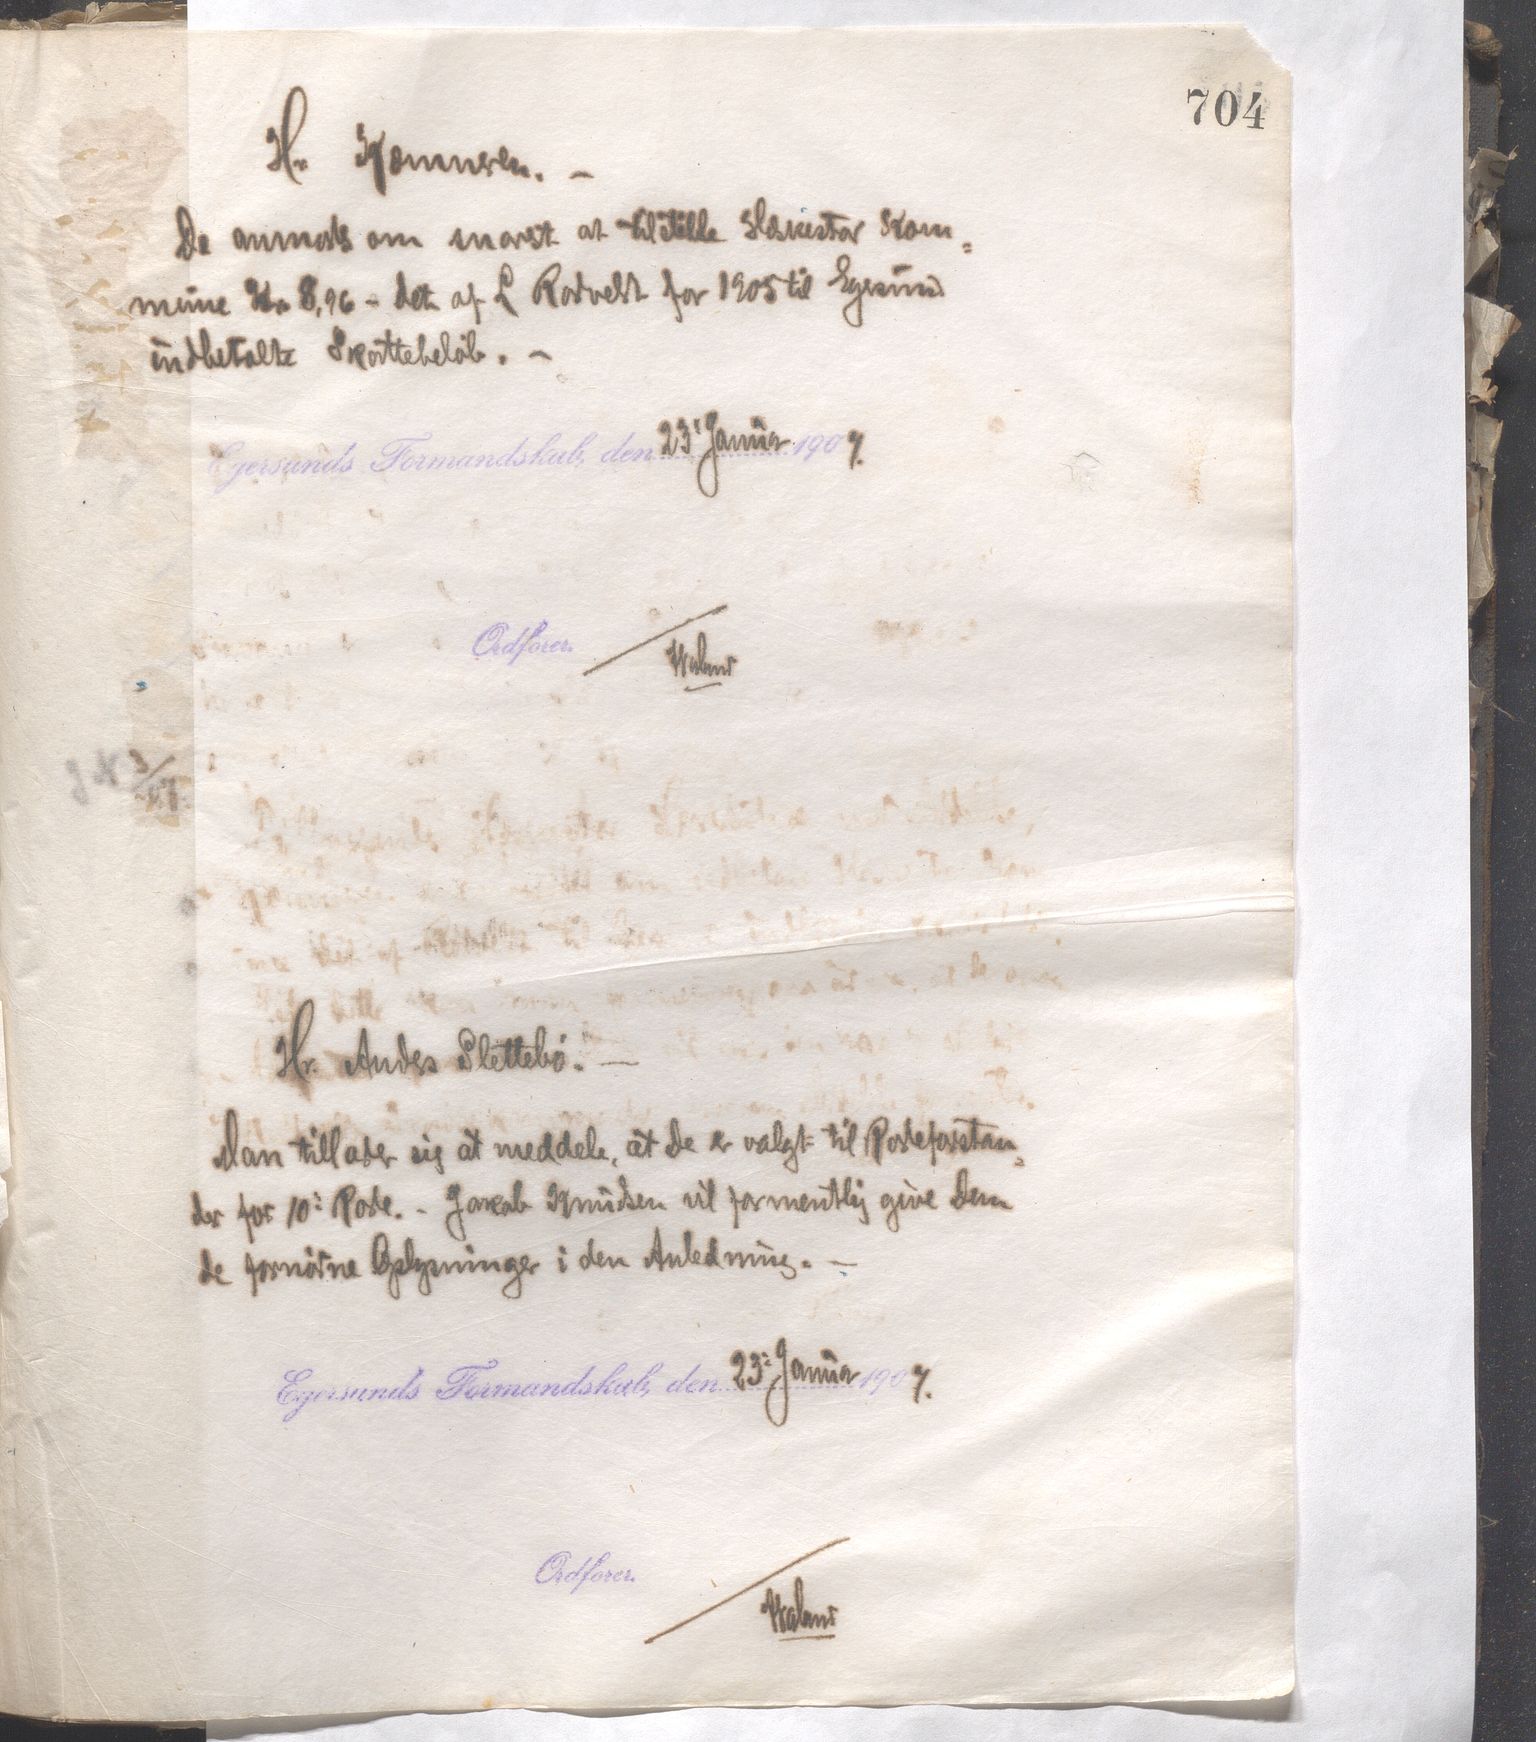 704
Hr. Kæmneren. -
De anmodes om snarest at tilstille Haskestør Kom=
mune Kr 8,96 - det af L Rodvelt for 1905 til Egersund
indbetalte Skattebeløb. -
Egersunds Formandskab, den 23' Januar 1907.
Ordfører.
Hr. Anders Slettebö. -
Man tillader sig at meddele, at De er valgt til Rodeforstan=
der for 10: Rode. - Jakob Knudsen vil formentlig give Dem
de fornødne Oplysninger i den Anledning. -
Egersunds Formandskab, den 23: Januar 1907.
Ordfører.